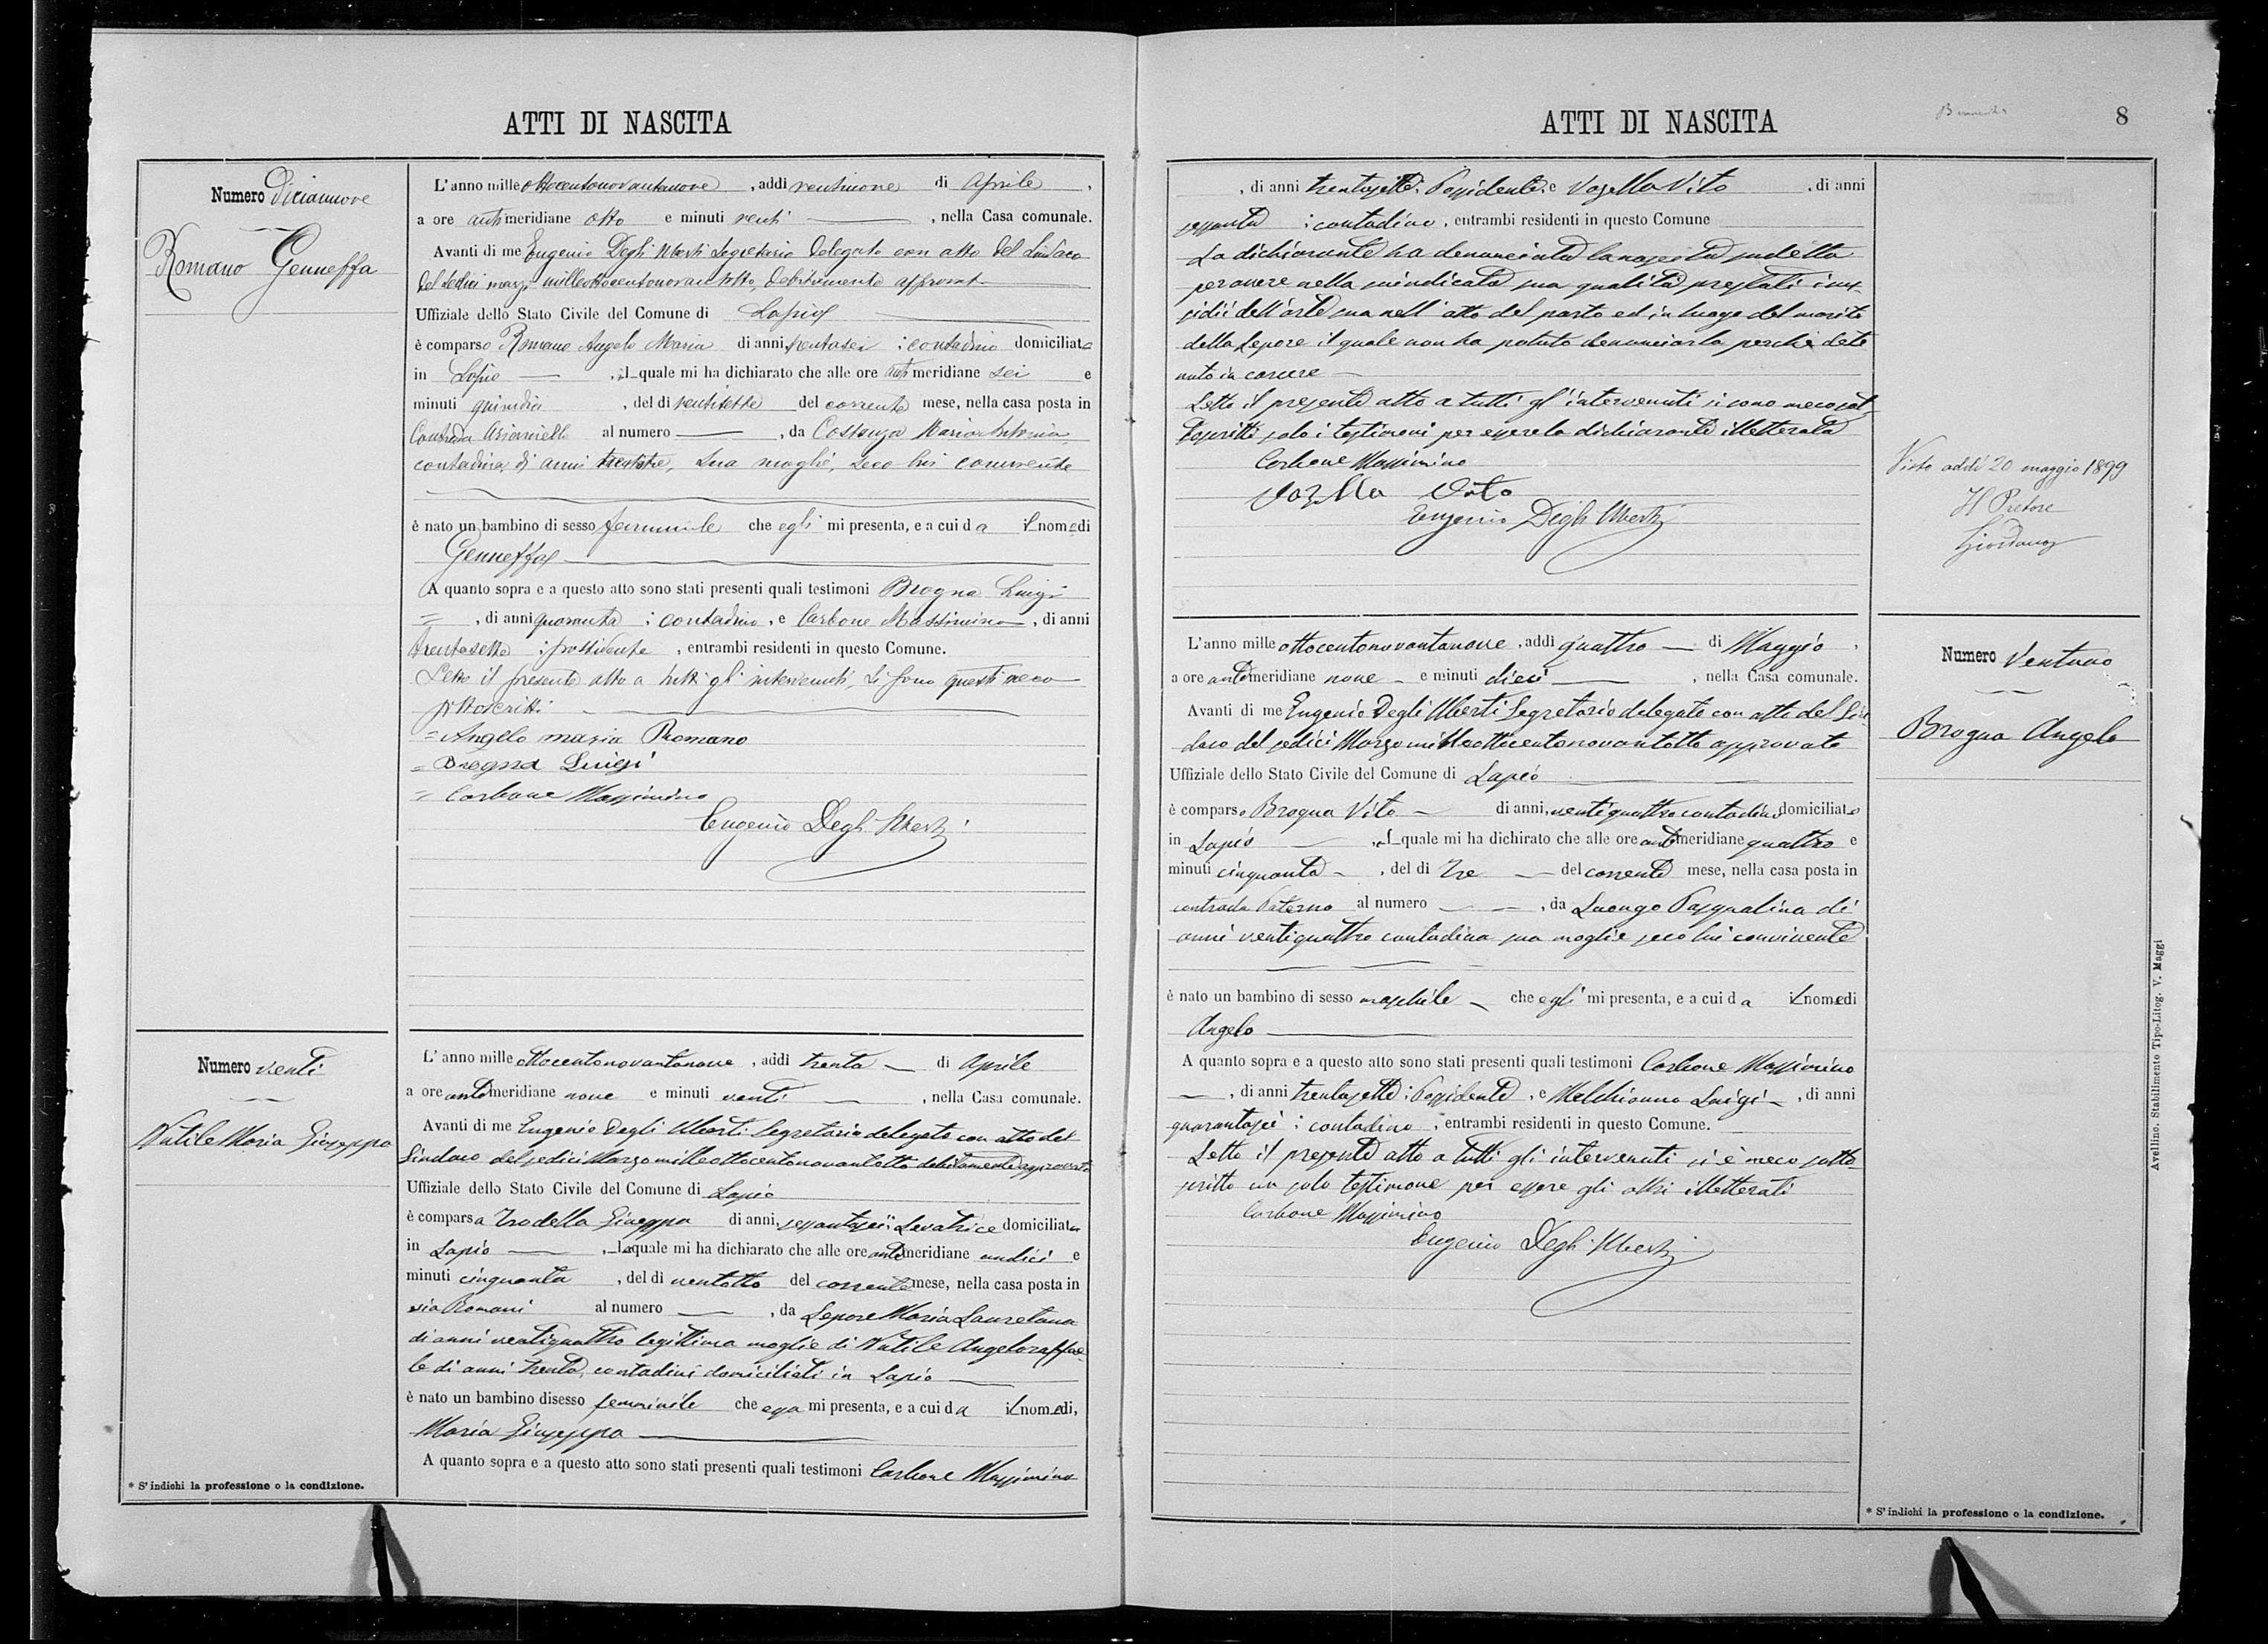 ATTI DI NASCITA
Numero Diciannove
Romano Genneffa
L'anno mille ottocentonovantanove, addì ventinove di Aprile,
a ore antimeridiane otto e minuti venti, nella Casa comunale.
Avanti di me Eugenio Degli Uberti Segretario Delegato con atto del Sindaco
del sedici marzo milleottocentonovantotto, debitamente approvat
Uffiziale dello Stato Civile del Comune di Lapio
è comparso Romano Angelo Maria di anni trentasei; contadino domiciliato
in Lapio, il quale mi ha dichiarato che alle ore antimeridiane sei e
minuti quindici, del dì ventisette del corrente mese, nella casa posta in
Contrada Arianiello al numero —, da Costanza Maria Antonia
contadina, di anni trentatre, sua moglie, seco lui convivente
è nato un bambino di sesso femminile che egli mi presenta, e a cui dà il nome di
Genneffa
A quanto sopra e a questo atto sono stati presenti quali testimoni Brogna Luigi
=, di anni quaranta; contadino, e Carbone Massimino, di anni
trentasette; possidente, entrambi residenti in questo Comune.
Letto il presente atto a tutti gli intervenuti, si sono questi meco
sottoscritti
= Angelo maria Romano
= Brogna Luigi
= Carbone Massimino
Eugenio Degli Uberti
Numero venti
Nutile Maria Giuseppa
L'anno mille ottocentonovantanove, addì trenta di Aprile
a ore antimeridiane nove e minuti venti, nella Casa comunale.
Avanti di me Eugenio Degli Uberti Segretario delegato con atto del
Sindaco del sedici Marzo milleottocentonovantotto debitamente approvato
Uffiziale dello Stato Civile del Comune di Lapio
è comparsa Trodella Giuseppa di anni sessantasei; Levatrice domiciliata
in Lapio, la quale mi ha dichiarato che alle ore antimeridiane undici e
minuti cinquanta, del dì ventotto del corrente mese, nella casa posta in
via Romani al numero —, da Lepore Maria Lauretana
di anni ventiquattro legittima moglie di Nutile Angeloraffae
le di anni trenta, contadini domiciliati in Lapio
è nato un bambino di sesso femminile che essa mi presenta, e a cui dà il nome di,
Maria Giuseppa
A quanto sopra e a questo atto sono stati presenti quali testimoni Carbone Massimino
* S'indichi la professione o la condizione.
ATTI DI NASCITA
8
, di anni trentasette; Possidente, e Vozella Vito, di anni
sessanta; contadino, entrambi residenti in questo Comune
La dichiarante ha denunciata la nascita sudetta
per avere nella suindicata sua qualità prestati i sus-
sidii dell'arte sua nell'atto del parto ed in luogo del marito
della Lepore il quale non ha potuto denunciarla perchè dete
nuto in carcere
Letto il presente atto a tutti gl'intervenuti si sono meco sot
toscritti solo i testimoni per essere la dichiarante illetterata
Carbone Massimino
Vozella Vito
Eugenio Degli Uberti
Visto addì 20 maggio 1899
Il Pretore
Giordano
L'anno mille ottocentonovantanove, addì quattro di Maggio,
a ore antimeridiane nove e minuti dieci, nella Casa comunale.
Avanti di me Eugenio Degli Uberti Segretario delegato con atto del Sin
daco del sedici Marzo milleottocentonovantotto approvato
Uffiziale dello Stato Civile del Comune di Lapio
è comparso Brogna Vito di anni, ventiquattro contadino domiciliato
in Lapio, il quale mi ha dichirato che alle ore antimeridiane quattro e
minuti cinquanta, del dì tre del corrente mese, nella casa posta in
contrada Paterno al numero —, da Luongo Pasqualina di
anni ventiquattro contadina sua moglie seco lui convivente
è nato un bambino di sesso maschile che egli mi presenta, e a cui dà il nome di
Angelo
A quanto sopra e a questo atto sono stati presenti quali testimoni Carbone Massimino
, di anni trentasette; Possidente, e Melchionna Luigi, di anni
quarantasei; contadino, entrambi residenti in questo Comune.
Letto il presente atto a tutti gli intervenuti si è meco sotto
scritto un solo testimone per essere gli altri illetterati
Carbone Massimino
Eugenio Degli Uberti
Numero Ventuno
Brogna Angelo
* S'indichi la professione o la condizione.
Avellino. Stabilimento Tipo-Litog. V. Maggi